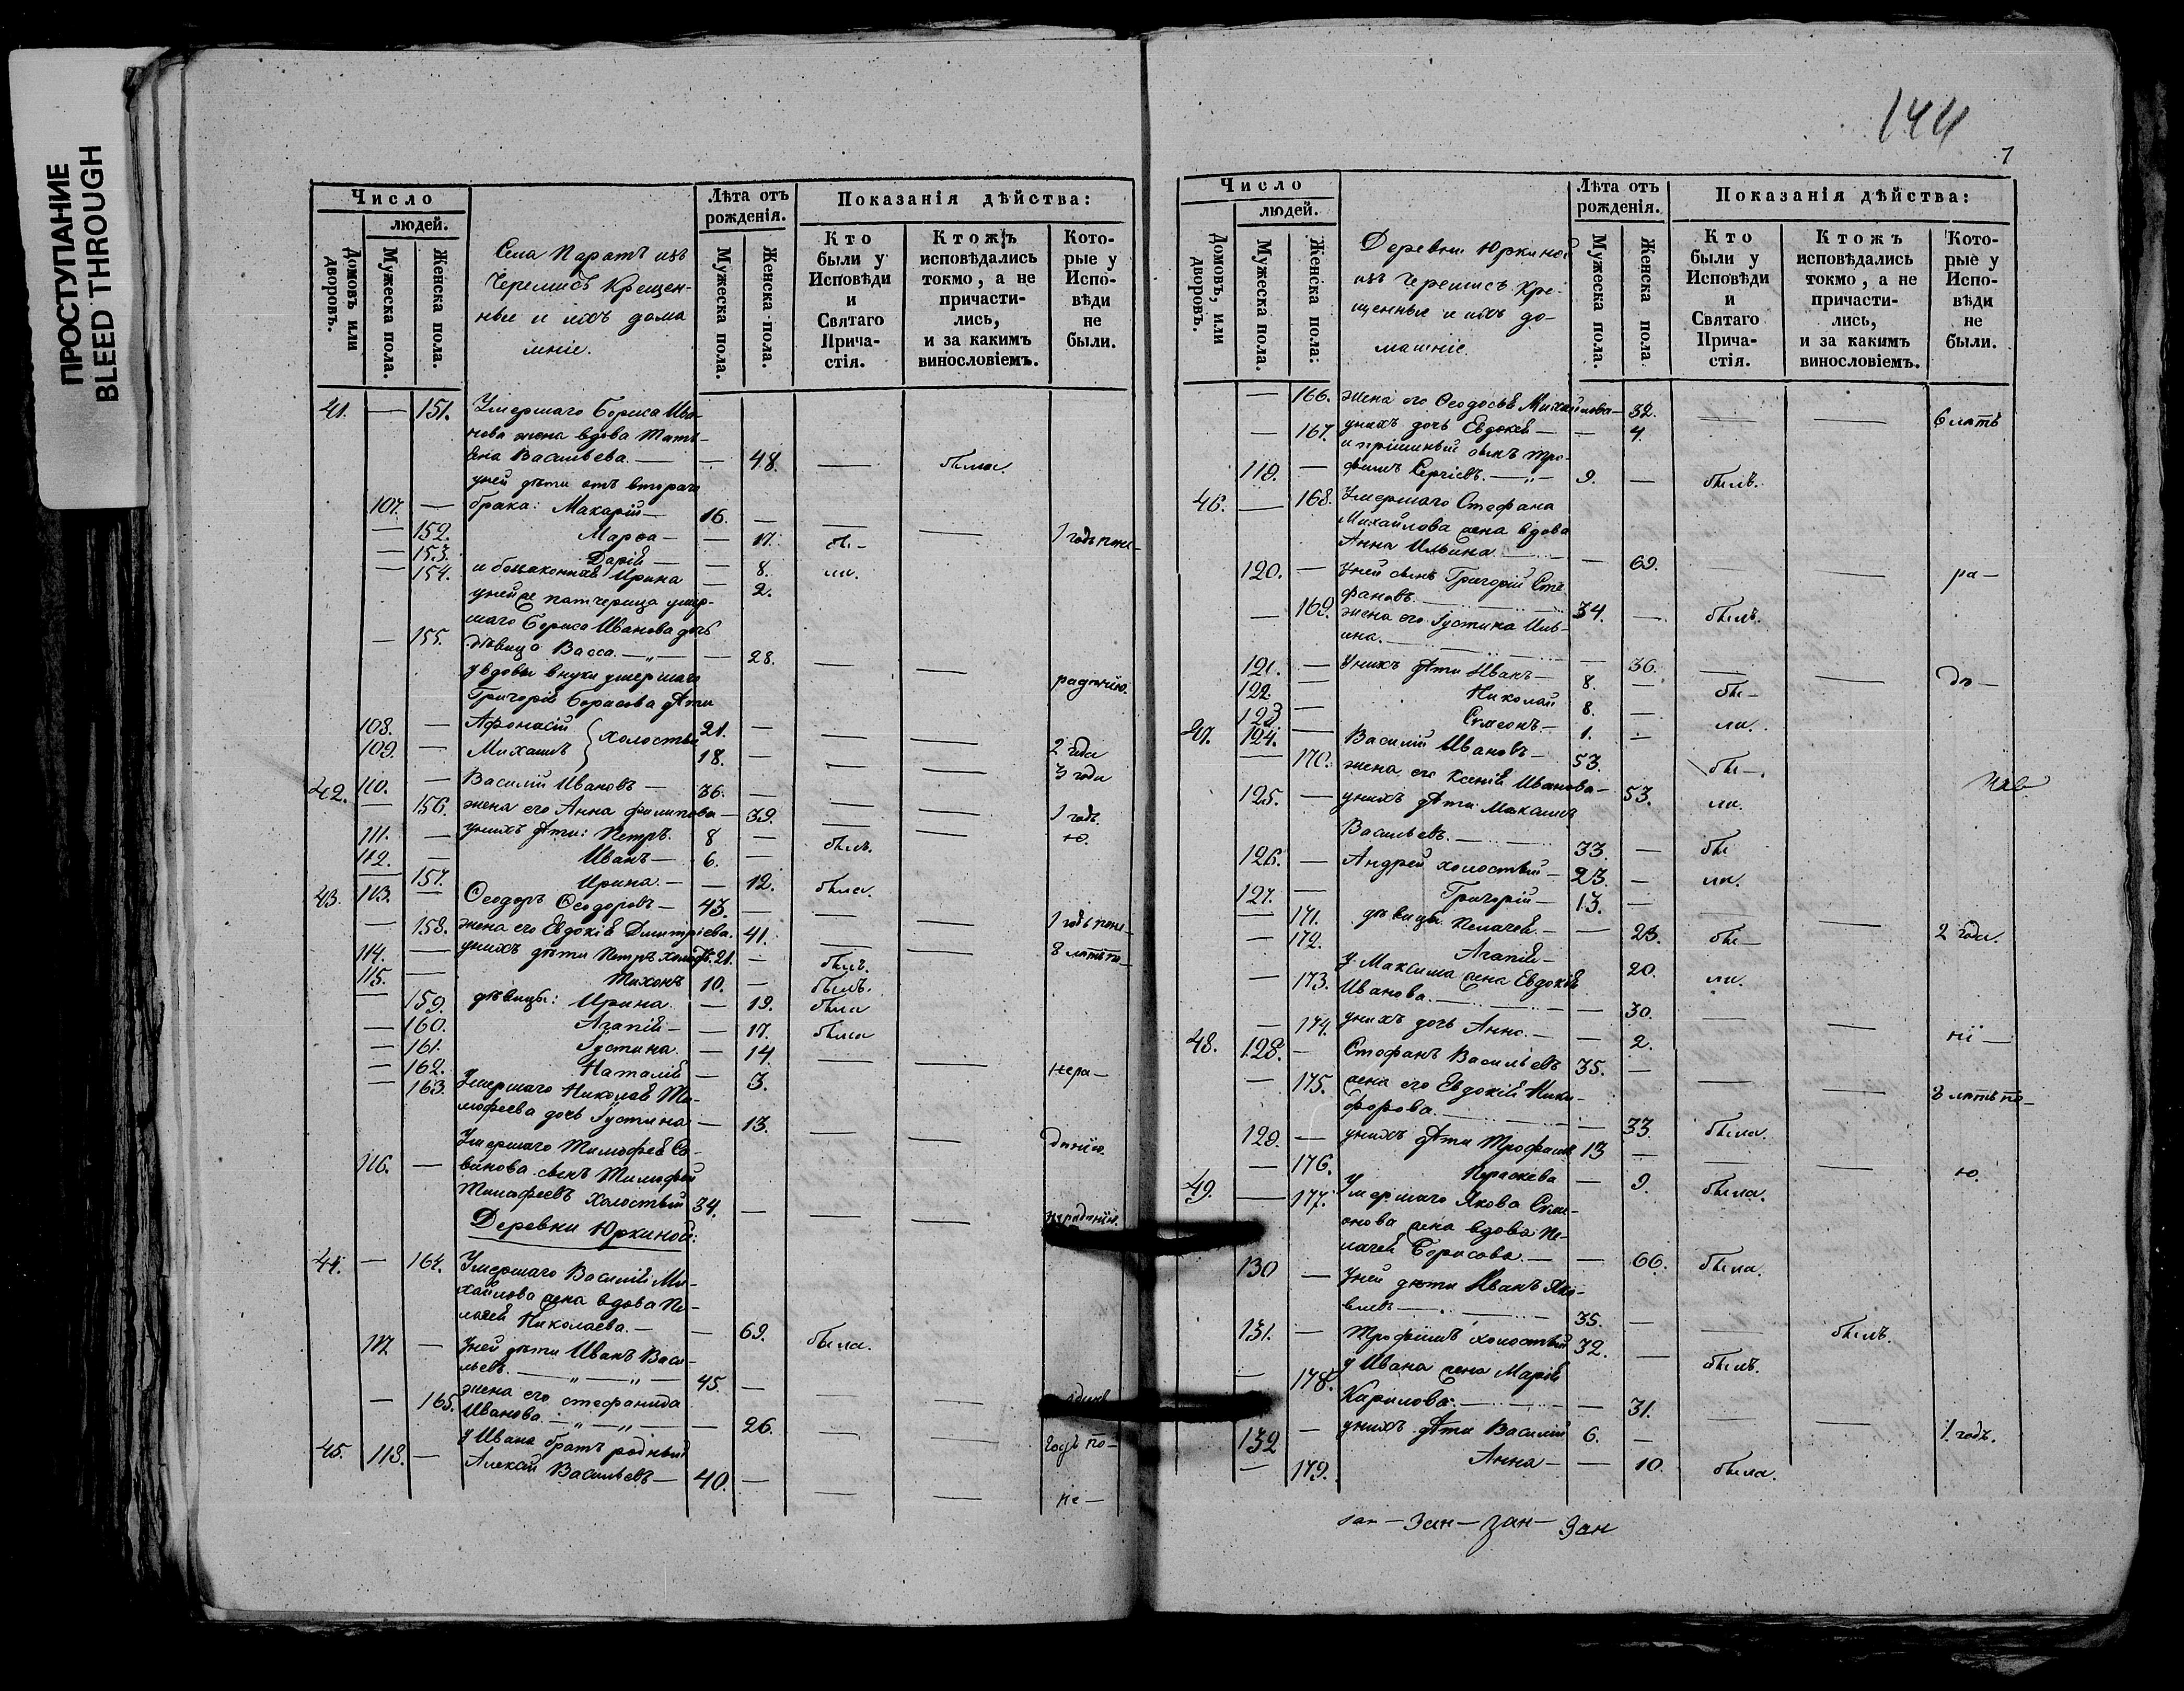 ПРОСТУПАНИЕ
BLEED THROUGH
Число
людей.
Домовъ или дворовъ.
Мужеска пола.
Женска пола.
Села Паратъ изъ
Черемисъ Крещен-
ные и ихъ дома
шніе.
Лѣта отъ рожденія.
Мужеска пола.
Женска пола.
Показанія дѣйства:
Кто были у Исповѣди и Святаго Прича-стія.
Ктожъ исповѣдались токмо, а не причасти-лись, и за какимъ винословіемъ.
Кото-рые у Испо-вѣди не были.
41. — 151. Умершаго Бориса Ива-
нова жена вдова Тать-
яна Васильева. — — 48. — была
у ней дѣти отъ втораго
107. — брака: Макарій — 16. — — —
— 152. Марѳа — — 17. бы- — 1 годъ
— 153. Дарія — — 8. ли.
— 154. и Ирина — 2.
у ней же патчерица умер-
шаго Бориса Иванова дочь
— 155. дѣвица Васса. — „ — — 28. — —
у вдовы внуки умершаго
Григорія Борисова дѣти
108. — Афонасій } холосты 21. — — — 2 года
109. — Михаилъ 18. — — — 3 года
42. 110. — Василій Ивановъ — 36. — — — 1 годъ.
— 156. жена его Анна Филипова — 39. — — ю.
111. — у нихъ дѣти: Петръ. 8 — былъ.
112. — Иванъ — 6. —
— 157. Ирина. — — 12. была.
43. 113. — Ѳеодоръ Ѳеодоровъ — 43. — — — 1 годъ
— 158. жена его Евдокія Дмитріева. 41. — — 8 лѣтъ
114. — у нихъ дѣти Петръ холост. 21. — былъ.
115. — Тихонъ 10. — былъ.
— 159. дѣвицы: Ирина. — 19. была
— 160. Агапія — — 17. была
— 161. Іустина. — 14. — — нера-
— 162. Наталія — 3.
— 163. Умершаго Николая Ти-
мофеева дочь Іустина — 13. — —
Умершаго Тимофея Са-
116. — винова сынъ Тимофей
Тимофеевъ холостый 34. — — — нерадѣнію.
Деревни Юркиной:
44. — 164. Умершаго Василія Ми-
хайлова жена вдова Пе-
лагея Николаева. — — 69. была.
117 — У ней дѣти Иванъ Васи-
льевъ. — „ — „ — 45. — —
— 165. жена его Стефанида
Иванова — „ — „ — — 26. — — годъ по-
у Ивана братъ родный
45. 118. — Алексѣй Васильевъ — 40. — — — не —
144
7
Число
людей.
Домовъ, или дворовъ.
Мужеска пола.
Женска пола:
Деревни Юркиной
изъ Черемисъ Кре-
щенные и ихъ до-
машніе.
Лѣта отъ рожденія.
Мужеска пола.
Женска пола.
Показанія дѣйства:
Кто были у Исповѣди и Святаго Прича-стія.
Ктожъ исповѣдались токмо, а не причасти-лись, и за какимъ винословіемъ.
Кото-рые у Испо-вѣди не были.
— 166. жена его Ѳеодосья Михайлова — 32. — — 6 лѣтъ
— 167. у нихъ дочь Евдокія — — 4.
и пріимный сынъ Тро-
119. — фимъ Сергіевъ. — „ — 9. — былъ.
46. — 168. Умершаго Стефана
Михайлова жена вдова
Анна Ильина — — 69. — — ра —
120. — У ней сынъ Григорій Сте-
фановъ. — 34. — былъ.
— 169. жена его Іустина Иль-
ина. — — 36. — — дѣ —
121. — У нихъ дѣти Иванъ — 8. — бы —
122. — Николай 8. — ли.
123. — Симеонъ — 1. —
47. 124. — Василій Ивановъ — 53. бы —
— 170. жена его Ксенія Иванова — 53. ли.
125. — у нихъ дѣти Максимъ
Васильевъ. — 33. — бы
126. — Андрей холостый — 23. — ли.
127. — Григорій — 13. — — — 2 года.
— 171. дѣвицы Пелагея. — — 23. бы —
— 172. Агапія — 20. ли.
— 173. у Максима жена Евдокія
Иванова. — — 30. — — ні —
— 174. у нихъ дочь Анна. — — 2.
48. 128. — Стефанъ Васильевъ 35. — — — 3 лѣтъ по —
— 175. жена его Евдокія Ники-
форова. — — 33. была.
129. — у нихъ дѣти Трофимъ 13 — — — ю.
— 176. Параскева — 9. была.
49. — 177. Умершаго Якова Симе-
онова жена вдова Пе-
лагея Борисова. — — 66. была.
130 — У ней дѣти Иванъ Яко-
влевъ — 35. — — былъ.
131. — Трофимъ холостый 32. — былъ.
— 178. у Ивана жена Марія
Кирилова. — — 31. — — 1 годъ.
132 — у нихъ дѣти Василій 6. —
— 179. Анна — — 10. была.
зан — Зан — Зан — Зан